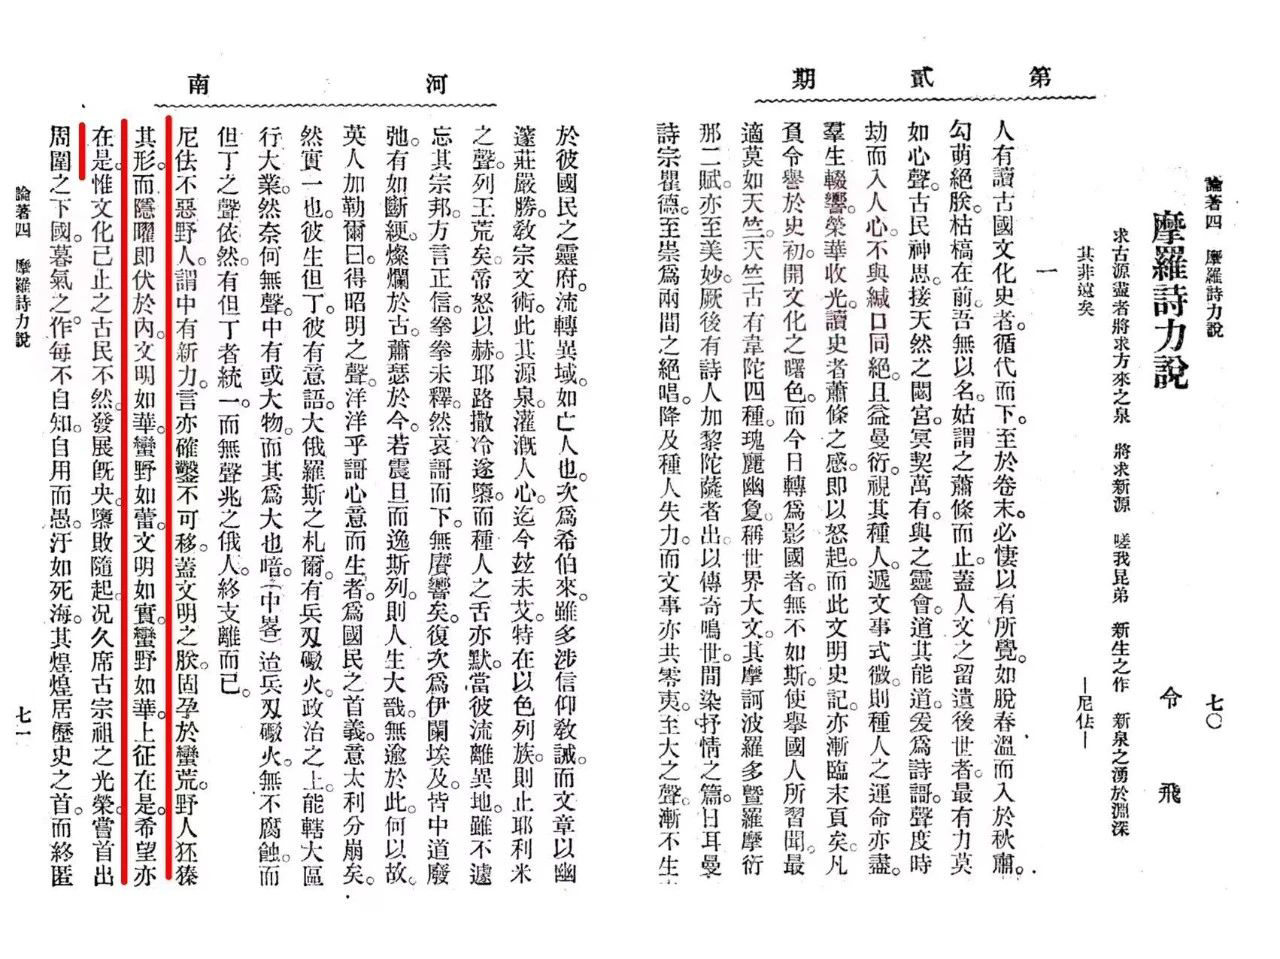 第貳期
論著四　摩羅詩力說　七〇
摩羅詩力說
令飛
求古源盡者將求方來之泉　將求新源　嗟我昆弟　新生之作　新泉之湧於淵深
其非遠矣　—尼佉—
一
人有讀古國文化史者。循代而下。至於卷末。必悽以有所覺。如脫春溫而入於秋肅。
勾萌絕朕。枯槁在前。吾無以名。姑謂之蕭條而止。蓋人文之留遺後世者。最有力莫
如心聲。古民神思。接天然之閟宮。冥契萬有。與之靈會。道其能道。爰爲詩謌。聲度時
劫而入人心。不與緘口同絕。且益曼衍。視其種人。遞文事式微。則種人之運命亦盡。
羣生輟響。榮華收光。讀史者蕭條之感。即以怒起。而此文明史記。亦漸臨末頁矣。凡
負令譽於史初。開文化之曙色。而今日轉爲影國者。無不如斯。使舉國人所習聞。最
適莫如天竺。天竺古有韋陀四種。瑰麗幽敻。稱世界大文。其摩訶波羅多暨羅摩衍
那二賦。亦至美妙。厥後有詩人加黎陀薩者出。以傳奇鳴世。間染抒情之篇。日耳曼
詩宗瞿德。至崇爲兩間之絕唱。降及種人失力。而文事亦共零夷。至大之聲。漸不生
河南
於彼國民之靈府。流轉異域。如亡人也。次爲希伯來。雖多涉信仰敎誡。而文章以幽
邃莊嚴勝。敎宗文術。此其源泉。灌漑人心。迄今玆未艾。特在以色列族。則止耶利米
之聲。列王荒矣。帝怒以赫。耶路撒冷遂隳。而種人之舌亦默。當彼流離異地。雖不遽
忘其宗邦。方言正信。拳拳未釋。然哀謌而下。無賡響矣。復次爲伊蘭埃及。皆中道廢
弛。有如斷綆。燦爛於古。蕭瑟於今。若震旦而逸斯列。則人生大戩。無逾於此。何以故。
英人加勒爾曰。得昭明之聲。洋洋乎謌心意而生者。爲國民之首義。意太利分崩矣。
然實一也。彼生但丁。彼有意語。大俄羅斯之札爾。有兵刄礮火。政治之上。能轄大區
行大業。然奈何無聲。中有或大物。而其爲大也喑。（中畧）迨兵刄礮火。無不腐蝕。而
但丁之聲依然。有但丁者統一。而無聲兆之俄人。終支離而已。
尼佉不惡野人。謂中有新力。言亦確鑿不可移。蓋文明之朕。固孕於蠻荒。野人狉獉
其形。而隱曜即伏於內。文明如華。蠻野如蕾。文明如實。蠻野如華。上征在是。希望亦
在是。惟文化已止之古民不然。發展旣央。隳敗隨起。况久席古宗祖之光榮。嘗首出
周圍之下國。暮氣之作。每不自知。自用而愚。汙如死海。其煌煌居歷史之首。而終匿
論著四　摩羅詩力說　七一